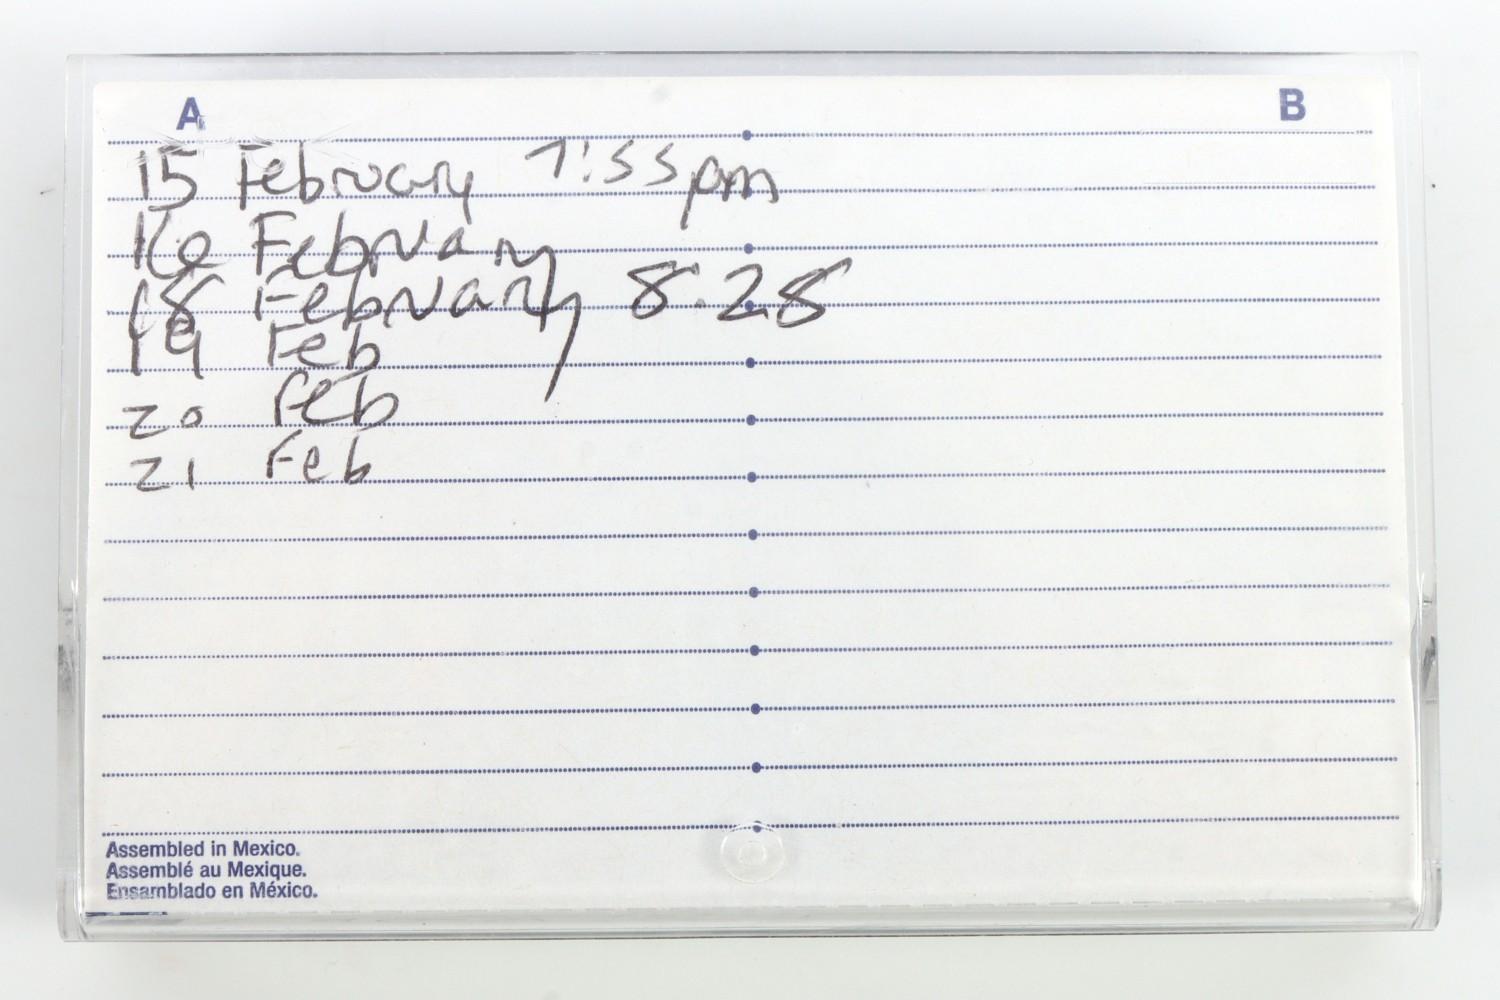 A B
15 February 7:33pm
16 February
18 February 8:28
19 Feb
20 Feb
21 Feb
Assembled in Mexico.
Assemblé au Mexique.
Ensamblado en México.